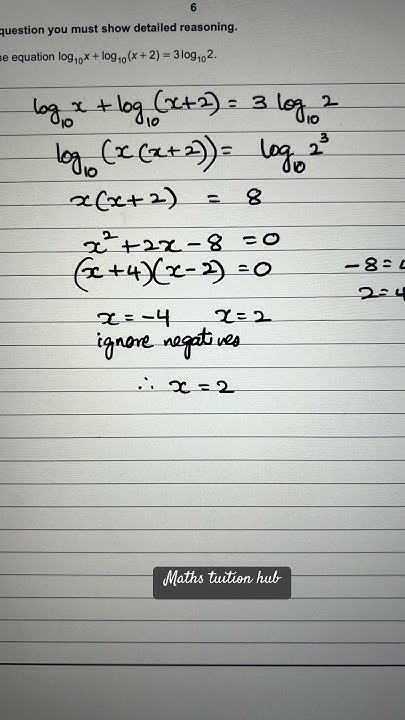 6
question you must show detailed reasoning.
e equation log₁₀x + log₁₀(x + 2) = 3 log₁₀2.
log₁₀ x + log₁₀ (x+2) = 3 log₁₀ 2
log₁₀ (x (x+2)) = log₁₀ 2³
x(x+2) = 8
x² + 2x - 8 = 0
(x+4)(x-2) = 0
-8 =
2 = 4
x = -4 x = 2
ignore negatives
∴ x = 2
Maths tuition hub